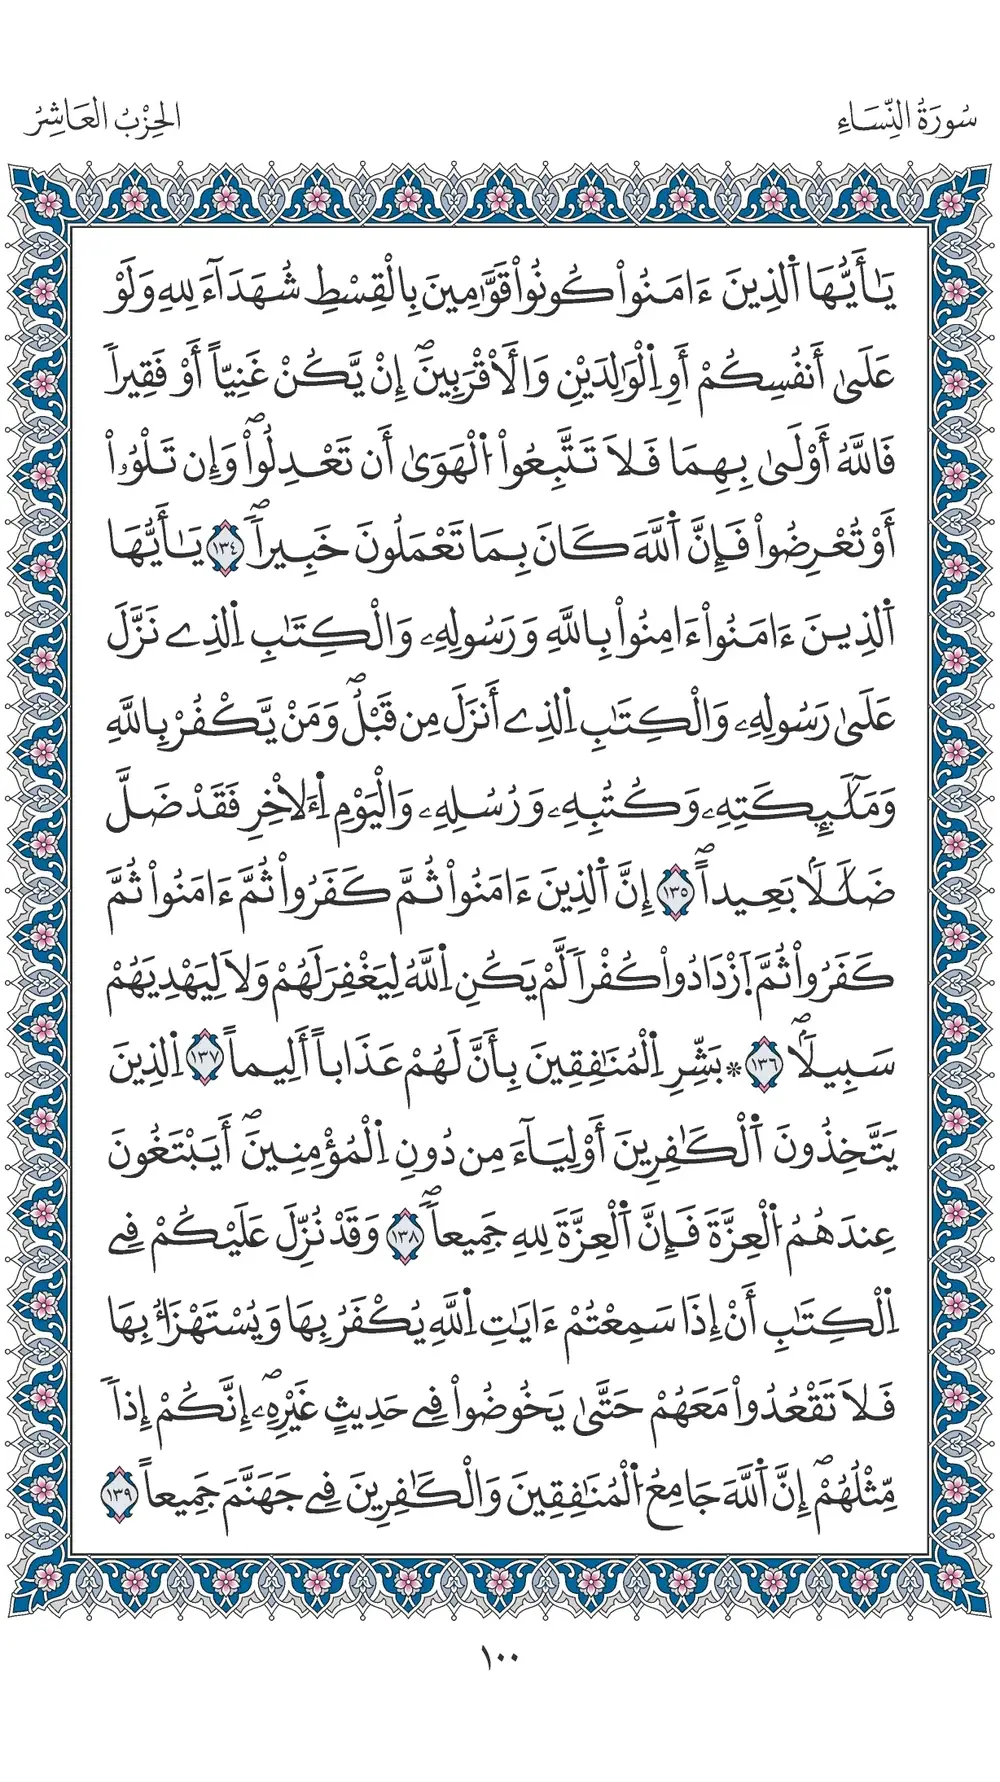 سُورَةُ النِّسَاءِ
الحِزْبُ العَاشِرُ
يَٰٓأَيُّهَا اَ۬لذِينَ ءَامَنُواْ كُونُواْ قَوَّٰمِينَ بِالْقِسْطِ شُهَدَآءَ لِلهِ وَلَوْ
عَلَىٰٓ أَنفُسِكُمْ أَوِ اِ۬لْوَٰلِدَيْنِ وَالَاقْرَبِينَۖ إِنْ يَّكُنْ غَنِيّاً أَوْ فَقِيراٗ
فَاللَّهُ أَوْلَىٰ بِهِمَا فَلَا تَتَّبِعُواْ اُ۬لْهَوَىٰٓ أَن تَعْدِلُواْۖ وَإِن تَلْوُۥٓاْ
أَوْ تُعْرِضُواْ فَإِنَّ اَ۬للَّهَ كَانَ بِمَا تَعْمَلُونَ خَبِيراٗۖ ١٣٤ يَٰٓأَيُّهَا
اَ۬لذِينَ ءَامَنُوٓاْ ءَامِنُواْ بِاللَّهِ وَرَسُولِهِۦ وَالْكِتَٰبِ اِ۬لذِے نَزَّلَ
عَلَىٰ رَسُولِهِۦ وَالْكِتَٰبِ اِ۬لذِےٓ أَنزَلَ مِن قَبْلُۖ وَمَنْ يَّكْفُرْ بِاللَّهِ
وَمَلَٰٓئِكَتِهِۦ وَكُتُبِهِۦ وَرُسُلِهِۦ وَالْيَوْمِ اِ۬لَاخِرِ فَقَدْ ضَلَّ
ضَلَٰلَاۢ بَعِيداًۖ ١٣٥ إِنَّ اَ۬لذِينَ ءَامَنُواْ ثُمَّ كَفَرُواْ ثُمَّ ءَامَنُواْ ثُمَّ
كَفَرُواْ ثُمَّ اَ۪زْدَادُواْ كُفْراٗ لَّمْ يَكُنِ اِ۬للَّهُ لِيَغْفِرَ لَهُمْ وَلَا لِيَهْدِيَهُمْ
سَبِيلَاۖ ١٣٦ ۞ بَشِّرِ اِ۬لْمُنَٰفِقِينَ بِأَنَّ لَهُمْ عَذَاباً أَلِيماً ١٣٧ اِ۬لذِينَ
يَتَّخِذُونَ اَ۬لْكَٰفِرِينَ أَوْلِيَآءَ مِن دُونِ اِ۬لْمُؤْمِنِينَۖ أَيَبْتَغُونَ
عِندَهُمُ اُ۬لْعِزَّةَ فَإِنَّ اَ۬لْعِزَّةَ لِلهِ جَمِيعاٗۖ ١٣٨ وَقَدْ نُزِّلَ عَلَيْكُمْ فِے
اِ۬لْكِتَٰبِ أَنْ إِذَا سَمِعْتُمْ ءَايَٰتِ اِ۬للَّهِ يُكْفَرُ بِهَا وَيُسْتَهْزَأُ بِهَا
فَلَا تَقْعُدُواْ مَعَهُمْ حَتَّىٰ يَخُوضُواْ فِے حَدِيثٍ غَيْرِهِۦٓۖ إِنَّكُمْ إِذاٗ
مِّثْلُهُمْۖ إِنَّ اَ۬للَّهَ جَامِعُ اُ۬لْمُنَٰفِقِينَ وَالْكَٰفِرِينَ فِے جَهَنَّمَ جَمِيعاً ١٣٩
١٠٠